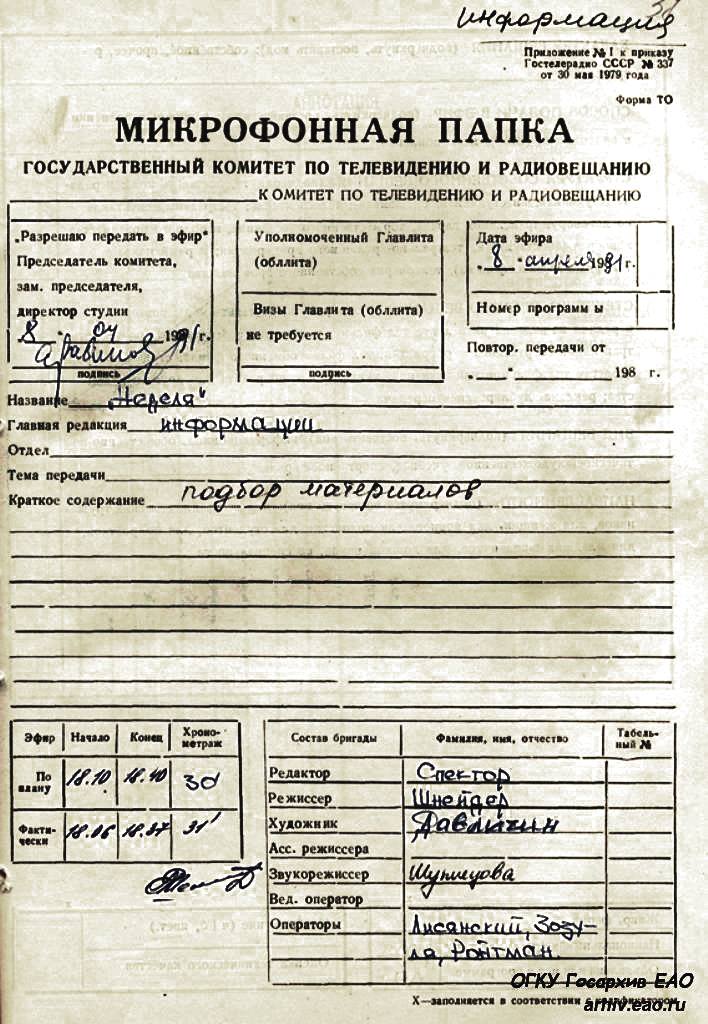 информация
Приложение № 1 к приказу
Гостелерадио СССР № 337
от 30 мая 1979 года
Форма ТО
МИКРОФОННАЯ ПАПКА
ГОСУДАРСТВЕННЫЙ КОМИТЕТ ПО ТЕЛЕВИДЕНИЮ И РАДИОВЕЩАНИЮ
КОМИТЕТ ПО ТЕЛЕВИДЕНИЮ И РАДИОВЕЩАНИЮ
„Разрешаю передать в эфир"
Председатель комитета,
зам. председателя,
директор студии
8 " 04 1991 г.
подпись
Уполномоченный Главлита
(обллита)
Визы Главлита (обллита)
не требуется
подпись
Дата эфира
„8" апреля 1991 г.
Номер программы
Повтор. передачи от
„ " 198 г.
Название „Неделя"
Главная редакция информации
Отдел
Тема передачи
Краткое содержание подбор материалов
Эфир Начало Конец Хроно-метраж
По плану 18.10 18.40 30'
Факти-чески 18.06 18.37 31'
Состав бригады Фамилия, имя, отчество Табель-ный №
Редактор Спектор
Режиссер Шнейдер
Художник
Асс. режиссера
Звукорежиссер
Вед. оператор
Операторы Лисянский, Зозу-
ля, Ройтман.
ОГКУ Госархив ЕАО
arhiv.eao.ru
X—заполняется в соответствии с классификатором